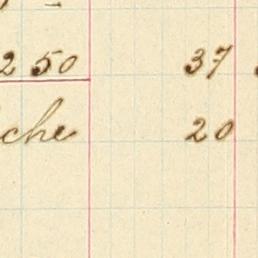 2 50 37
che 20